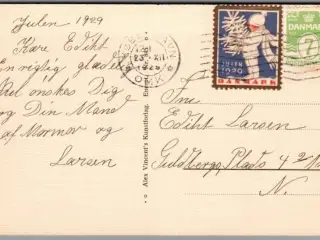 Julen 1929
Kære Edith
En rigtig glædelig
Jul ønskes Dig
og Din Mand
af Mormor og
Larsen
Alex Vincent's Kunstforlag.
KØBENHAVN
23. XII
1929
DANMARK
DANMARK
7
Fru
Edith Larsen
Guldbergs Plads 4 2
N.